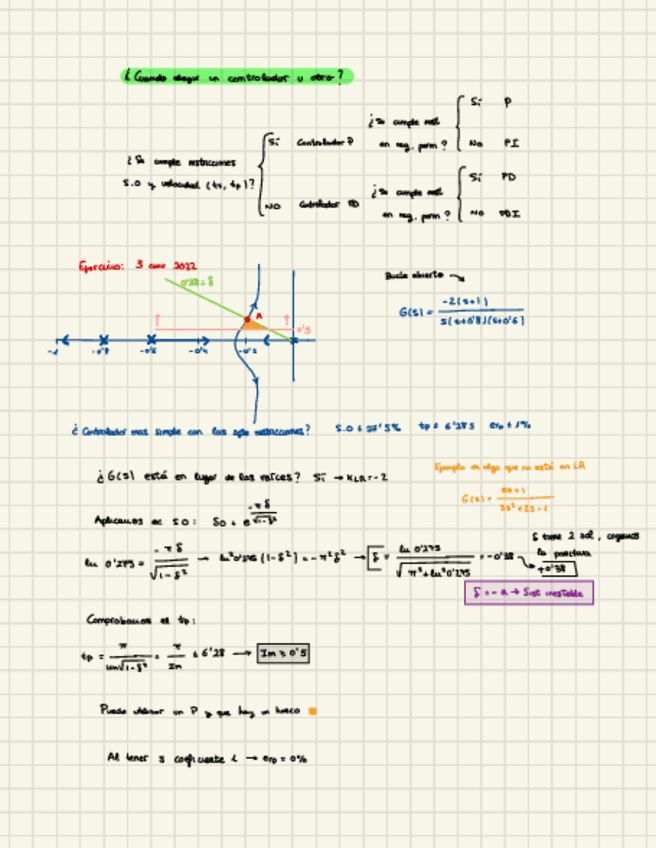 ¿Cuando elegir un controlador u otro?
¿Se cumple restricciones
S.O y velocidad (ts, tp)?
Sí Controlador P
¿Se cumple
en reg. perm?
Sí P
No PI
No Controlador PD
¿Se cumple
en reg. perm?
Sí PD
No PDI
Ejercicio: 3 2022
Bucle abierto
G(s) = -2(s+1) / s(s+0'8)(s+0'6)
A
0'5
-1 -0'8 -0'6 -0'4
¿Controlador mas simple con las restricciones? S.O ≤ 27'5% tp ≤ 6'28s
¿G(s) está en lugar de las raíces? Sí → KLR = -2
Ejemplo de algo que no está en LR
Aplicamos ec SO: So = e^(-πδ/√(1-δ²))
ln 0'275 = -πδ/√(1-δ²) → ln²0'275 (1-δ²) = -π²δ² → δ = ln 0'275 / √(π²+ln²0'275) = -0'38
δ tiene 2 sol, cogemos
la positiva
+0'38
δ = -a → Sist inestable
Comprobamos el tp:
tp = π/(ωn√(1-δ²)) = π/Im ≤ 6'28 → Im ≥ 0'5
Puedo utilizar un P y que hay un hueco
Al tener s coeficiente 1 → erp = 0%